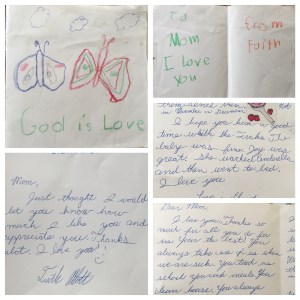 God is Love
To
Mom
I love
you
From
Faith
I hope you have a good
time with the Jacks. The
baby was fine. Joy was
great. She
and then went to bed.
I love you
Mom,
Just thought I would
let you know how
much I like you and
appreciate you. Thanks
alot. I love you!
Dear Mom,
I love you. Thanks so
much for all you do for
us. You're the best! You
always take care of us when
we are sick. You teach us
school. You make meals. You
clean house. You always